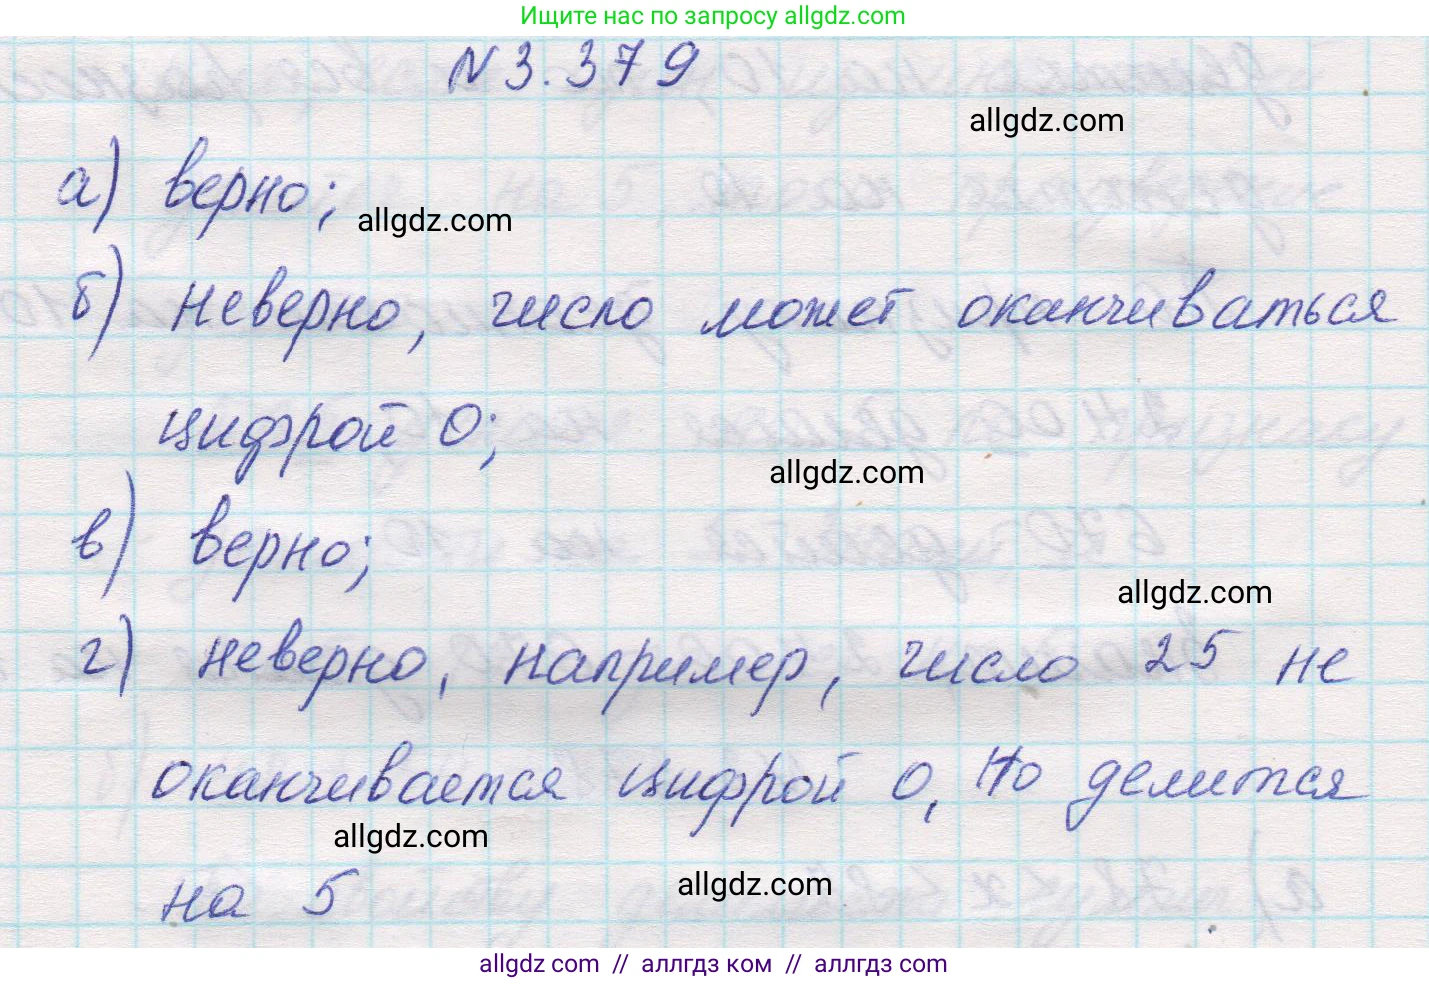 Ищите нас по запросу allgdz.com
N 3.379
allgdz.com
а) верно;
allgdz.com
б) неверно, число может оканчиваться
цифрой 0;
allgdz.com
в) верно;
allgdz.com
г) неверно, например, число 25 не
оканчивается цифрой 0, но делится
allgdz.com
на 5
allgdz.com
allgdz com // аллгдз ком // allgdz com